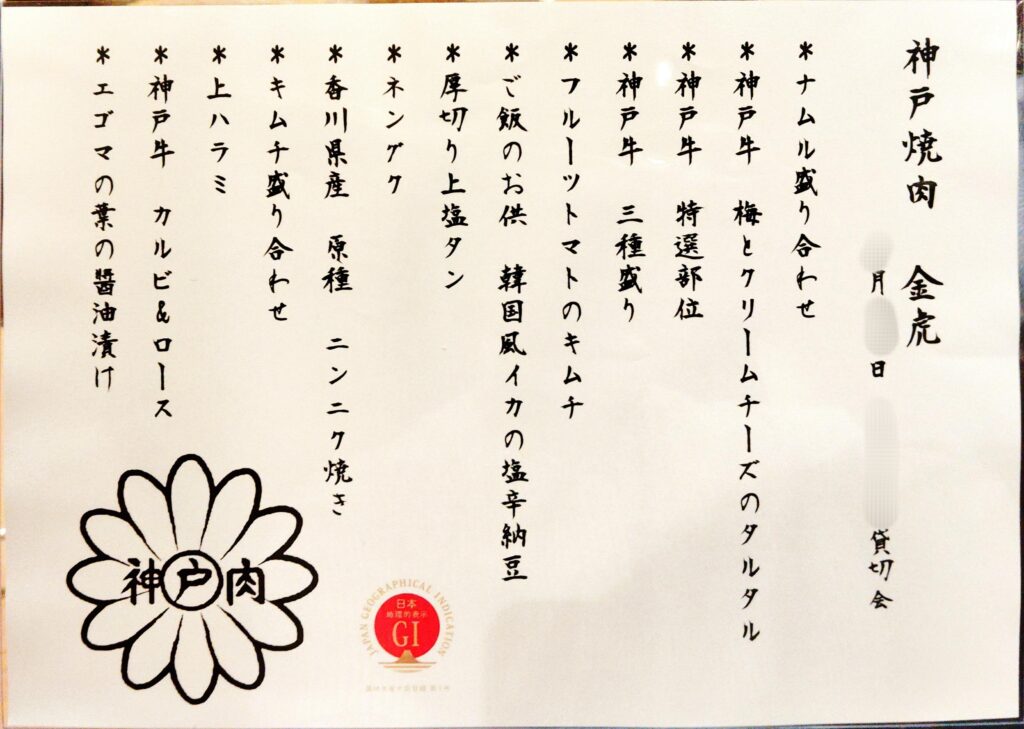 神戸焼肉 金虎
月 日 貸切会
＊ナムル盛り合わせ
＊神戸牛 梅とクリームチーズのタルタル
＊神戸牛 特選部位
＊神戸牛 三種盛り
＊フルーツトマトのキムチ
＊ご飯のお供 韓国風イカの塩辛納豆
＊厚切り上塩タン
＊ネングク
＊香川県産 原種 ニンニク焼き
＊キムチ盛り合わせ
＊上ハラミ
＊神戸牛 カルビ&ロース
＊エゴマの葉の醤油漬け
神戸肉
JAPAN GEOGRAPHICAL INDICATION
日本
地理的表示
GI